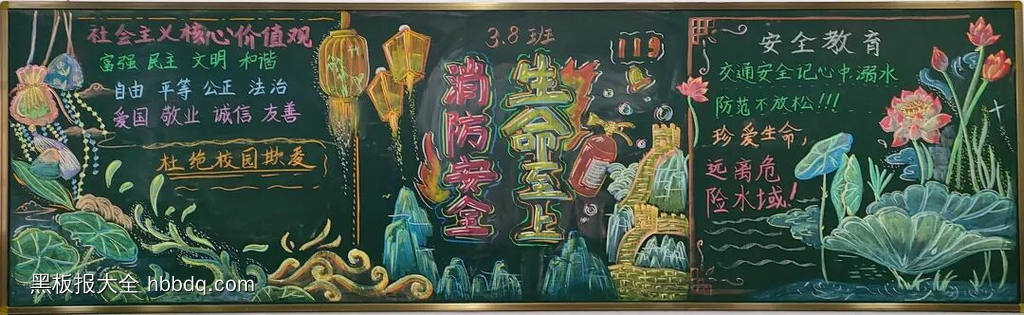 社会主义核心价值观
富强 民主 文明 和谐
自由 平等 公正 法治
爱国 敬业 诚信 友善
杜绝校园欺凌
3.8班
119
生命至上
消防安全
安全教育
交通安全记心中.溺水
防范不放松!!!
珍爱生命,
远离危
险水域!
黑板报大全 hbbdq.com